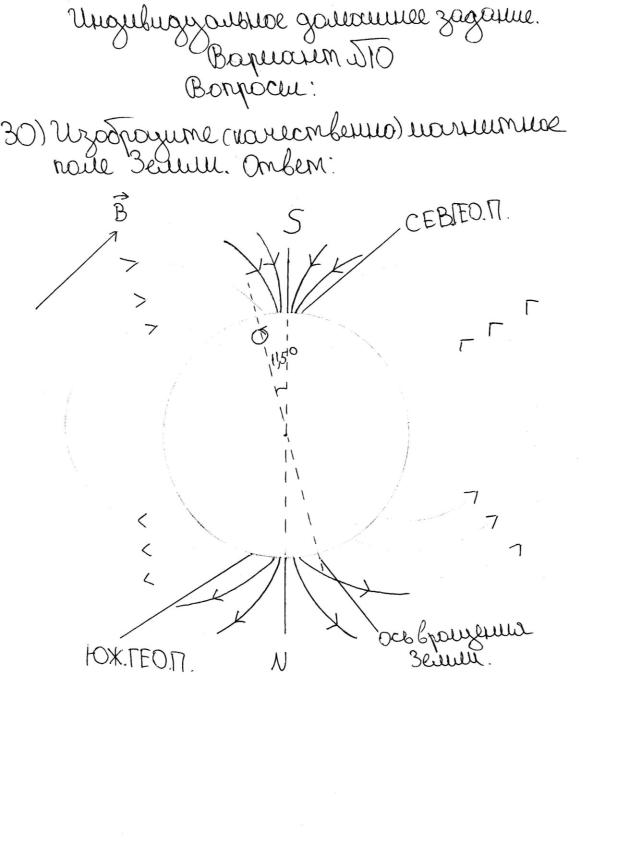 Индивидуальное домашнее задание.
Вариант №10
Вопросы:
30) Изобразите (качественно) магнитное
поле Земли. Ответ:
B
S
СЕВ.ГЕО.П.
11,5°
ЮЖ.ГЕО.П.
N
ось вращения
Земли.